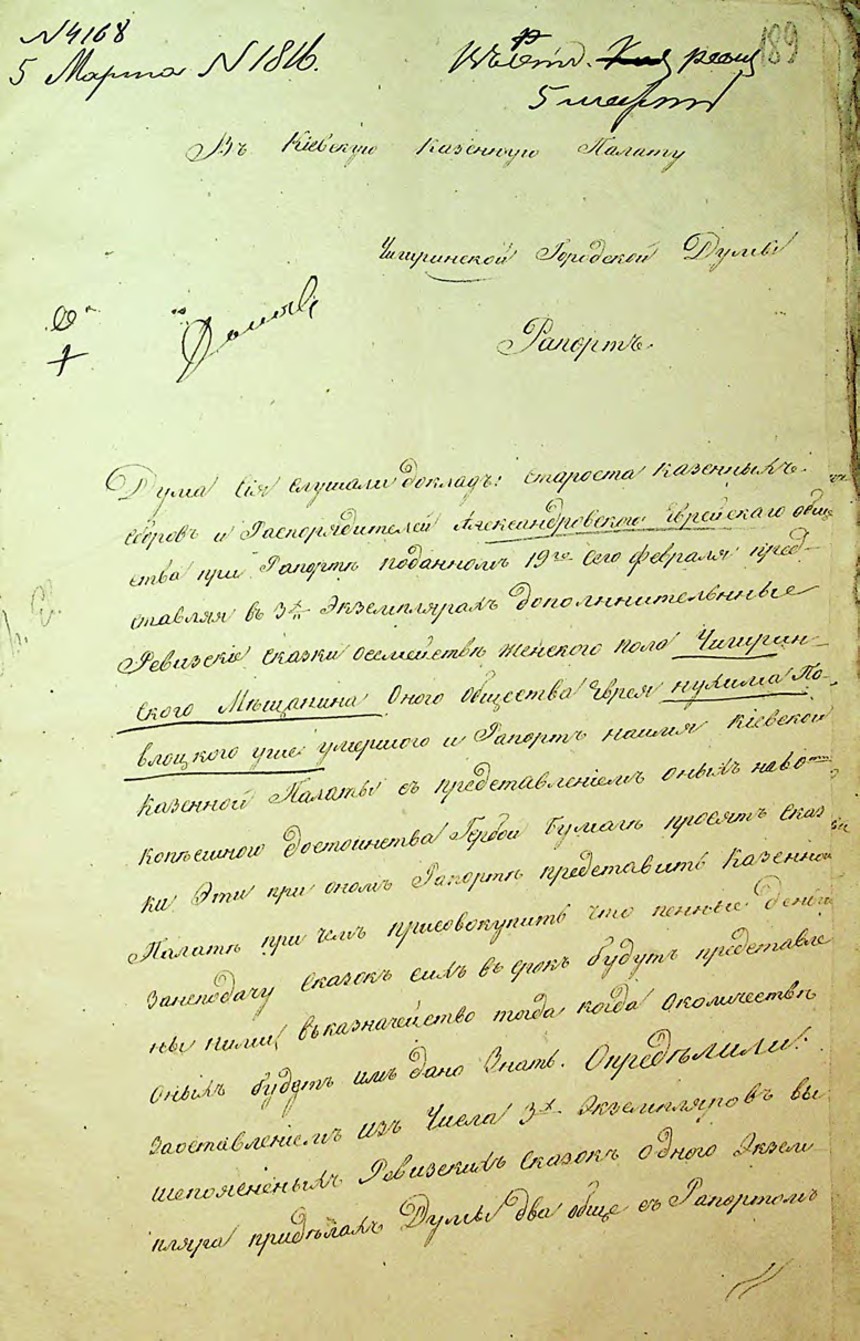 N 4168
5 Марта N 1816.
189
5 марта
Въ Кіевскую Казенную Палату
Чигиринской Городской Думы
Рапортъ.
Дума сія слушали докладъ: староста казенныхъ
сборовъ и Распорядителей Александровского Еврейскаго обще
ства при Рапортѣ поданномъ 19го сего февраля пред-
ставляя въ 3х Экземплярахъ дополнительнные
Ревизскіе сказки осемействѣ женского поло Чигирин-
ского Мѣщанина Оного общества Еврея нухима По-
влоцкого уже умершого и Рапортъ наимя Кіевской
Казенной Палаты съ представленіемъ оныхъ на
копѣешного достоинства Гербой бумагѣ просятъ сказ
ки Эти при ономъ Рапортѣ представить Казенной
Палатѣ при чемъ присовокупить что пенные деньги
занеподачу сказокъ сихъ въ срокъ будутъ представле
ны ними въказначейство тогда когда околичествѣ
оныхъ будутъ имъ дано Знать. Опредѣлили:
Заоставленіемъ изъ Числа 3х Экземпляровъ вы
шепоясненыхъ Ревизскихъ сказокъ одного Экзем
пляра придѣлахъ Думы два обще съ Рапортомъ